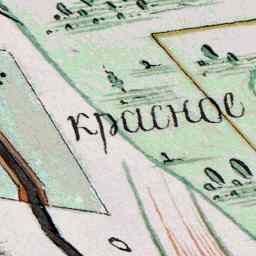 красное